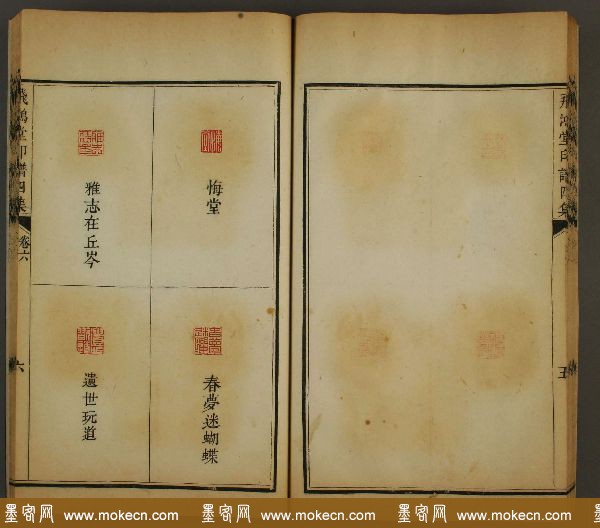 飛鴻堂印譜四集
五
悔堂
雅志在丘岑
春夢迷蝴蝶
遺世玩道
飛鴻堂印譜四集
卷六
六
墨客网 www.mokecn.com 墨客网 www.mokecn.com 墨客网 www.mokecn.com